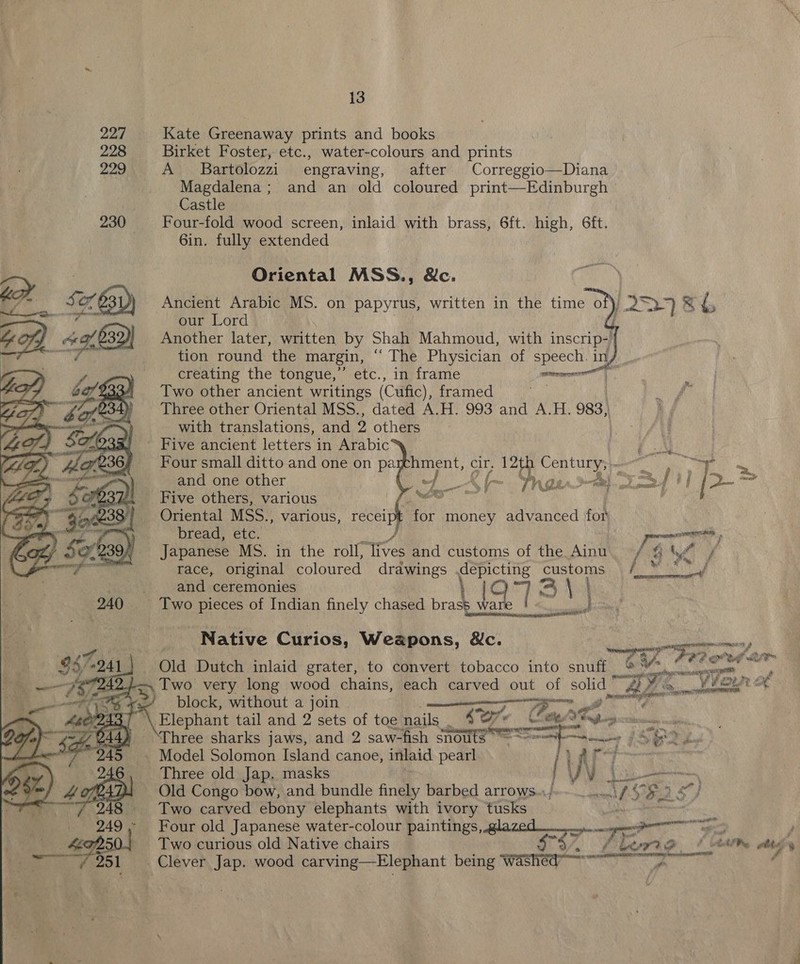 13
227 Kate Greenaway prints and books
228 Birket Foster, etc., water-colours and prints
229 A Bartolozzi engraving, after Correggio—Diana
Magdalena; and an old coloured print—Edinburgh
Castle
230 Four-fold wood screen, inlaid with brass, 6ft. high, 6ft.
6in. fully extended
Oriental MSS., &c.
231 Ancient Arabic MS. on papyrus, written in the time of
our Lord
232 Another later, written by Shah Mahmoud, with inscrip-
tion round the margin, “The Physician of speech in
creating the tongue,” etc., in frame
233 Two other ancient writings (Cufic), framed
234 Three other Oriental MSS., dated A.H. 993 and A.H. 983,
with translations, and 2 others
235 Five ancient letters in Arabic
236 Four small ditto and one on parchment, cir. 12th Century,
and one other
237 Five others, various
238 Oriental MSS., various, receipt for money advanced for
bread, etc.
239 Japanese MS. in the roll, lives and customs of the Ainu
race, original coloured drawings depicting customs
and ceremonies
19731
240 Two pieces of Indian finely chased brass ware
Native Curios, Weapons, &c.
241 Old Dutch inlaid grater, to convert tobacco into snuff
242 Two very long wood chains, each carved out of solid
block, without a join
243 Elephant tail and 2 sets of toe nails
244 Three sharks jaws, and 2 saw-fish snouts
245 Model Solomon Island canoe, inlaid pearl
246 Three old Jap. masks
247 Old Congo bow, and bundle finely barbed arrows
248 Two carved ebony elephants with ivory tusks
249 Four old Japanese water-colour paintings, glazed
250 Two curious old Native chairs
251 Clever Jap. wood carving—Elephant being washed